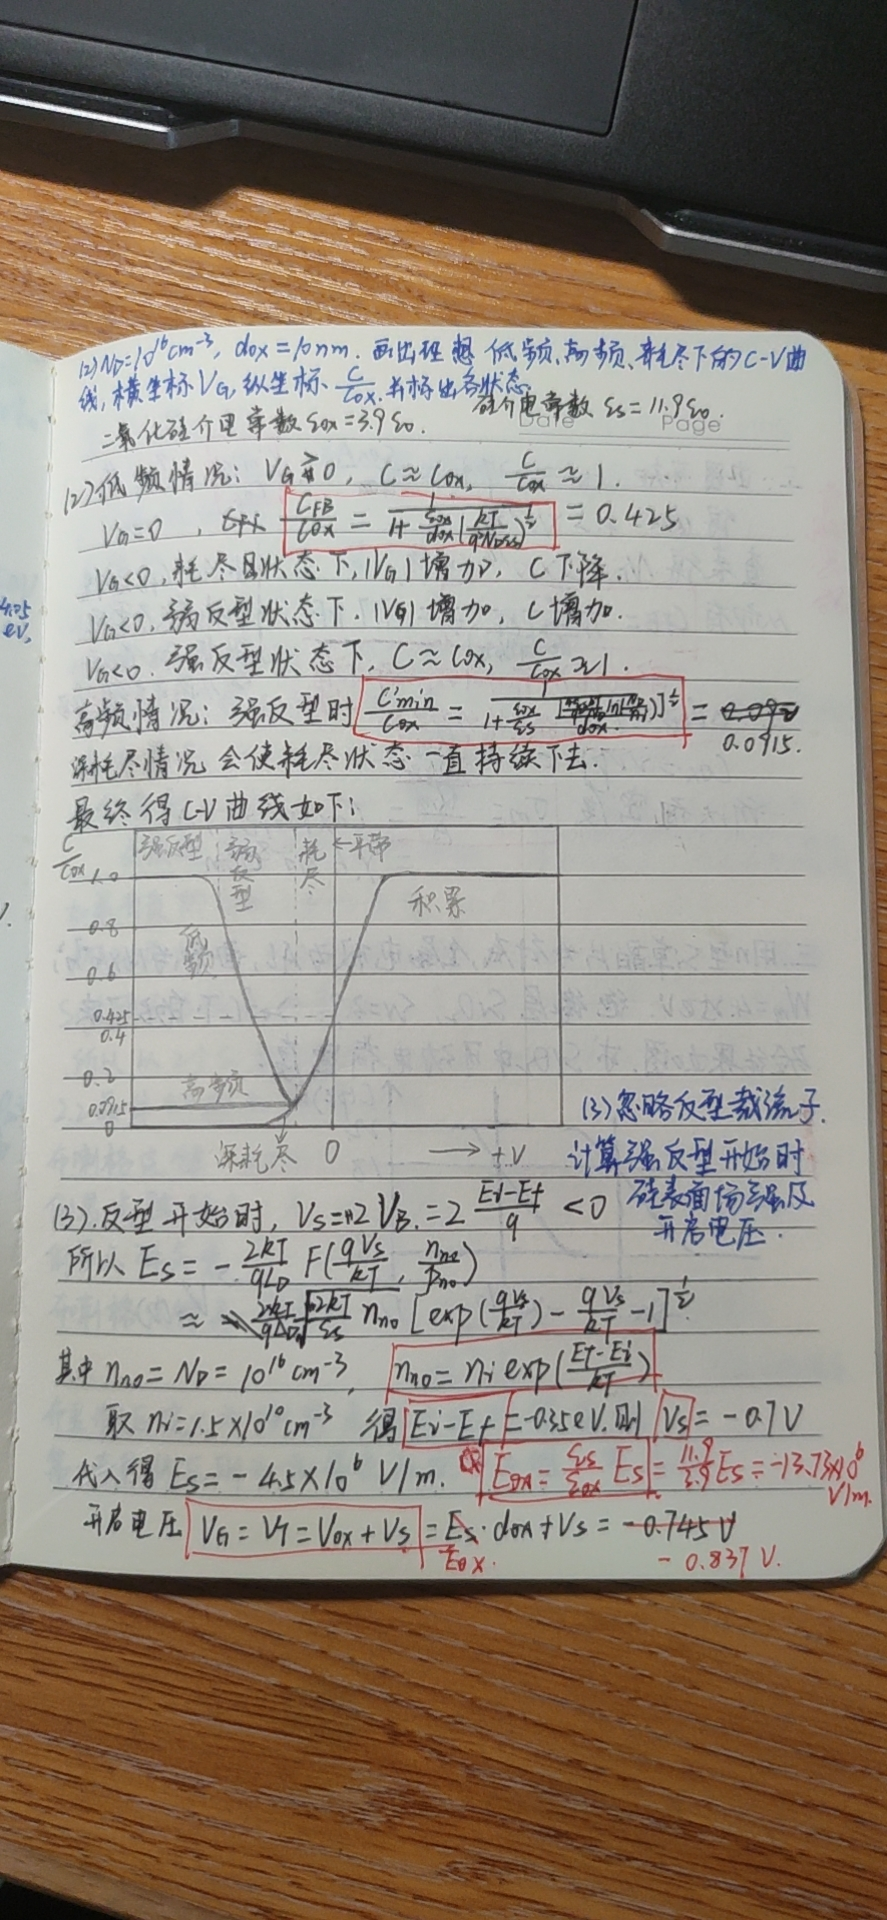 (2) N_D=10^16 cm^-3, dox=10nm. 画出理想低频、高频、耗尽下的C-V曲
线, 横坐标V_G, 纵坐标 C/Cox. 并标出各状态.
二氧化硅介电常数 εox=3.9ε0. 硅介电常数 εs=11.9ε0.
Date Page
(2) 低频情况: V_G 0, C≈Cox, C/Cox≈1.
V_G=0, C_FB/Cox = 1/(1+ εox/dox (kT/q²N_Dεs)^1/2) = 0.425
V_G<0, 耗尽状态下, |V_G|增加, C下降.
V_G<0, 弱反型状态下, |V_G|增加, C增加.
V_G<0, 强反型状态下, C≈Cox, C/Cox≈1.
高频情况: 强反型时 C'min/Cox = 1/(1+ εox/εs [ ]^1/2) = 0.0915.
深耗尽情况会使耗尽状态一直持续下去.
最终得C-V曲线如下:
C/Cox 强反型 弱反型 耗尽 ←平带
1.0
积累
0.8 低频
0.6
0.425
0.4
0.2 高频
0.0915
0
深耗尽 0 → +V
4.05
eV,
(3) 忽略反型载流子.
计算强反型开始时
硅表面场强及
开启电压.
(3). 反型开始时, Vs=2V_B=2 (Ei-Ef)/q <0
所以 Es = - 2kT/qL_D F(qVs/kT, n_no/p_no)
≈ √(2kT/εs) n_no [exp(qVs/kT) - qVs/kT -1]^1/2
其中 n_no=N_D=10^16 cm^-3, n_no=ni exp(Ef-Ei/kT)
取 ni=1.5×10^10 cm^-3 得 Ei-Ef=-0.35eV. 则 Vs=-0.7V
代入得 Es=-4.5×10^6 V/m. Eox= εs/εox Es = 11.9/3.9 Es = -13.73×10^6
V/m.
开启电压 V_G=V_T=Vox+Vs = Es·dox+Vs = -0.745V
Eox. -0.837V.